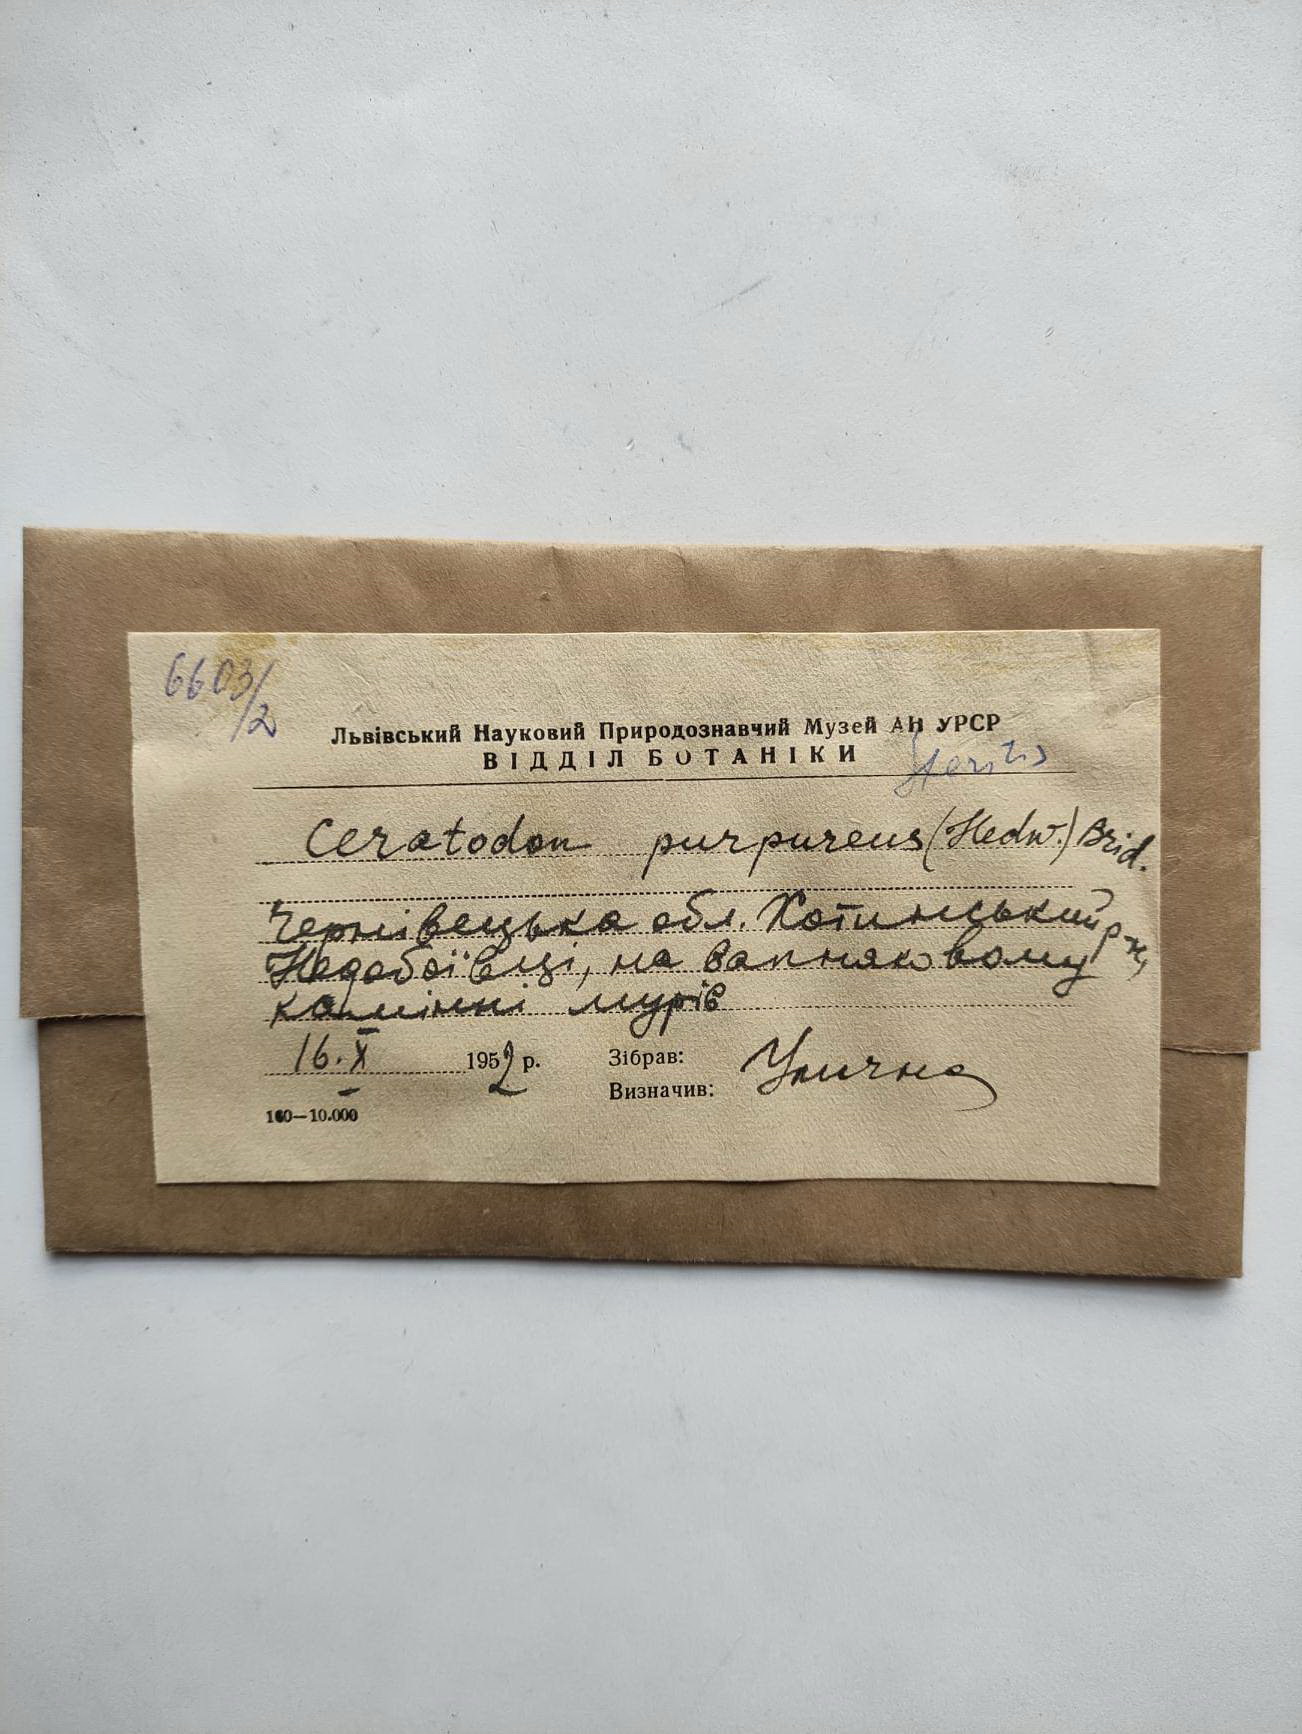 6603/2
Львівський Науковий Природознавчий Музей АН УРСР
ВІДДІЛ БОТАНІКИ
Ceratodon purpureus (Hedw.) Brid.
Чернівецька обл. Хотинський р-н,
Недобоївці, на вапняковому
камінні мурів
16.X 1952 р. Зібрав: Улична
Визначив:
100—10.000